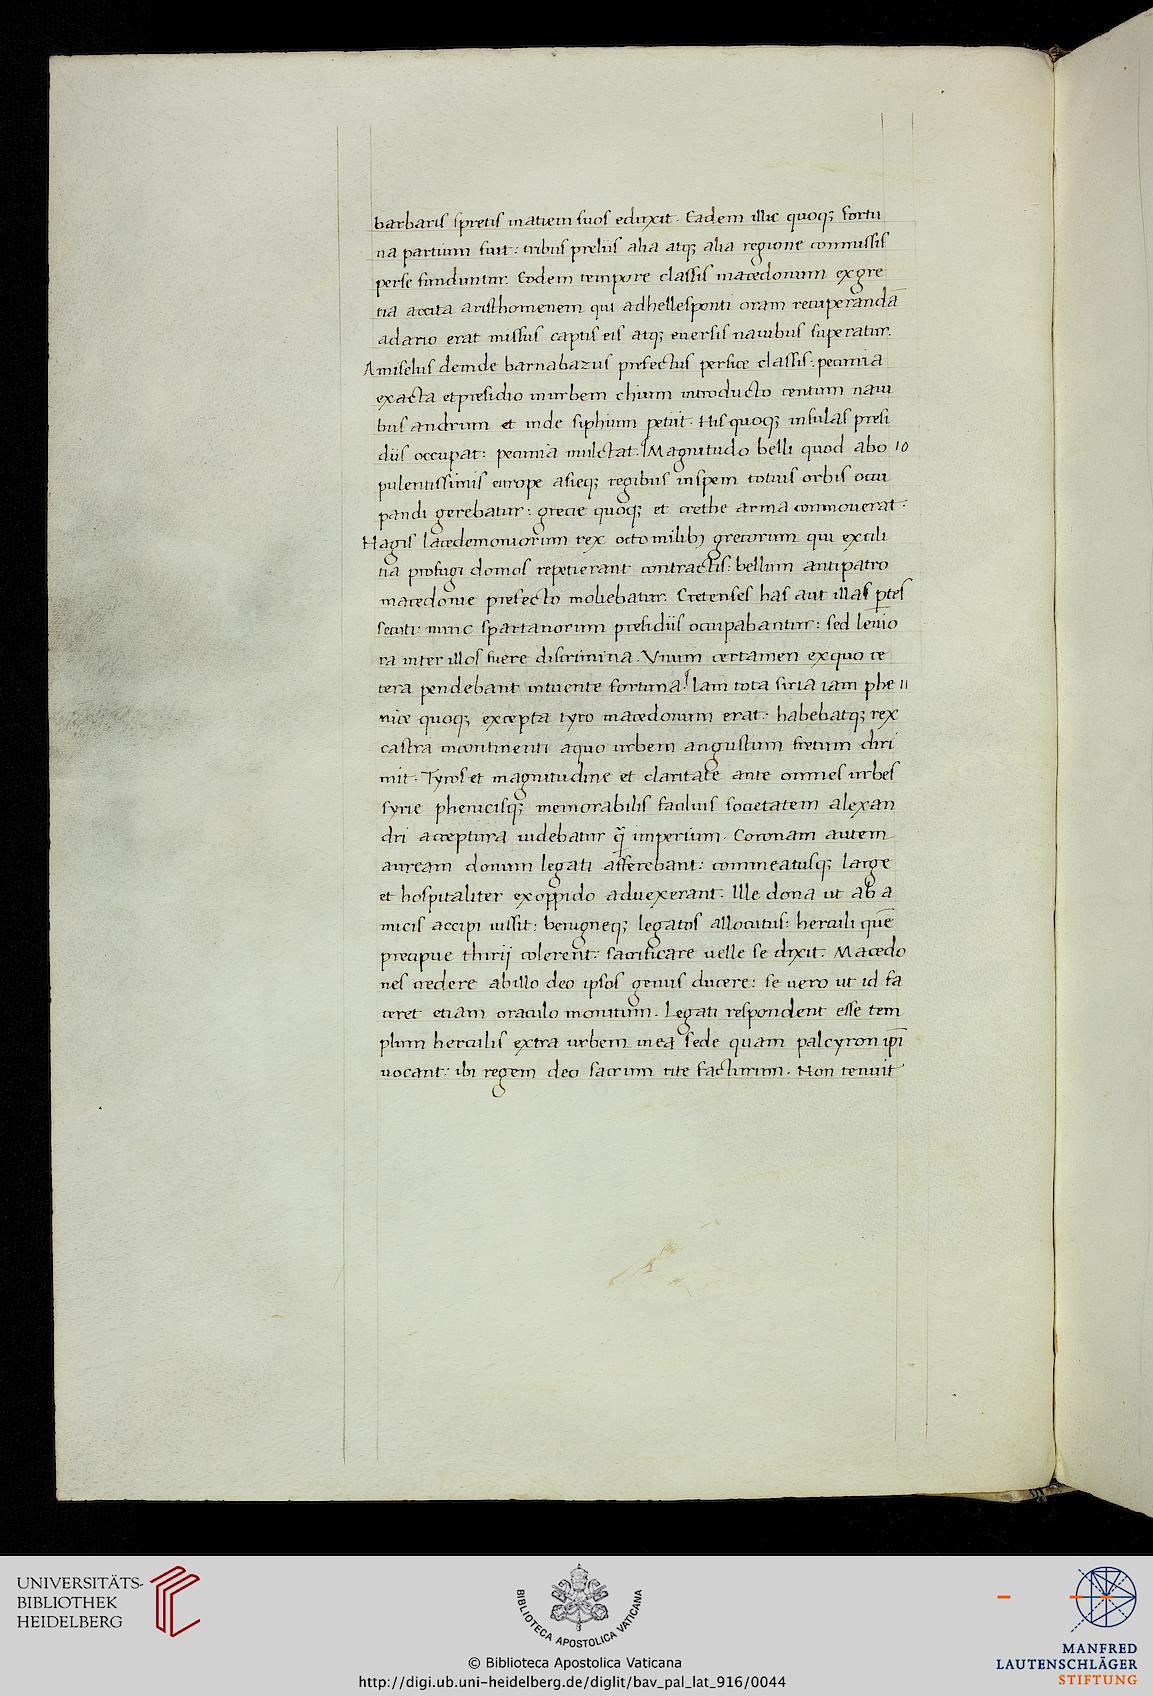 barbaris spretis inatiem suos eduxit. Eadem illic quoq; fortu
na partium fuit: tribus preliis alia atq; alia regione commissis
perse funduntur. Eodem tempore classis macedonum ex gre
tia accita aristhomenem qui adhellesponti oram recuperandā
adario erat missus captis eis atq; euersis nauibus superatur.
Amiselus deinde barnabazus prefectus persice classis: pecunia
exacta et presidio inurbem chium introducto centum naui
bus andrum et inde siphium petiit. His quoq; insulas presi
diis occupat: pecunia mulctat. Magnitudo belli quod abo 10
pulentissimis europe asieq; regibus inspem totius orbis occu
pandi gerebatur: grecie quoq; et crethe arma commouerat.
Hagis lacedemoniorum rex octo milibꝫ grecorum qui ex cili
tia profugi domos repetierant contractis: bellum antipatro
macedonie prefecto moliebatur. Cretenses has aut illas ꝑtes
secuti: nunc spartanorum presidiis occupabantur: sed leuio
ra inter illos fuere discrimina. Vnum certamen exquo ce
tera pendebant intuente fortuna. Iam tota siria iam phe 11
nice quoq; excepta tyro macedonum erat: habebatq; rex
castra incontinenti aquo urbem angustum fretum diri
mit. Tyros et magnitudine et claritate ante omnes urbes
syrie phenicisq; memorabilis facilius societatem alexan
dri acceptura uidebatur q̄ imperium. Coronam autem
auream donum legati afferebant: commeatusq; large
et hospitaliter exoppido aduexerant. Ille dona ut ab a
micis accipi iussit: benigneq; legatos allocutus: herculi quē
precipue thirij colerent: sacrificare uelle se dixit. Macedo
nes credere abillo deo ipsos genus ducere: se uero ut id fa
ceret etiam oraculo monitum. Legati respondent esse tem
plum herculis extra urbem inea sede quam palcyron ip̄i
uocant: ibi regem deo sacrum rite facturum. Non tenuit
UNIVERSITÄTS-
BIBLIOTHEK
HEIDELBERG
BIBLIOTECA APOSTOLICA VATICANA
MANFRED
LAUTENSCHLÄGER
STIFTUNG
© Biblioteca Apostolica Vaticana
http://digi.ub.uni-heidelberg.de/diglit/bav_pal_lat_916/0044